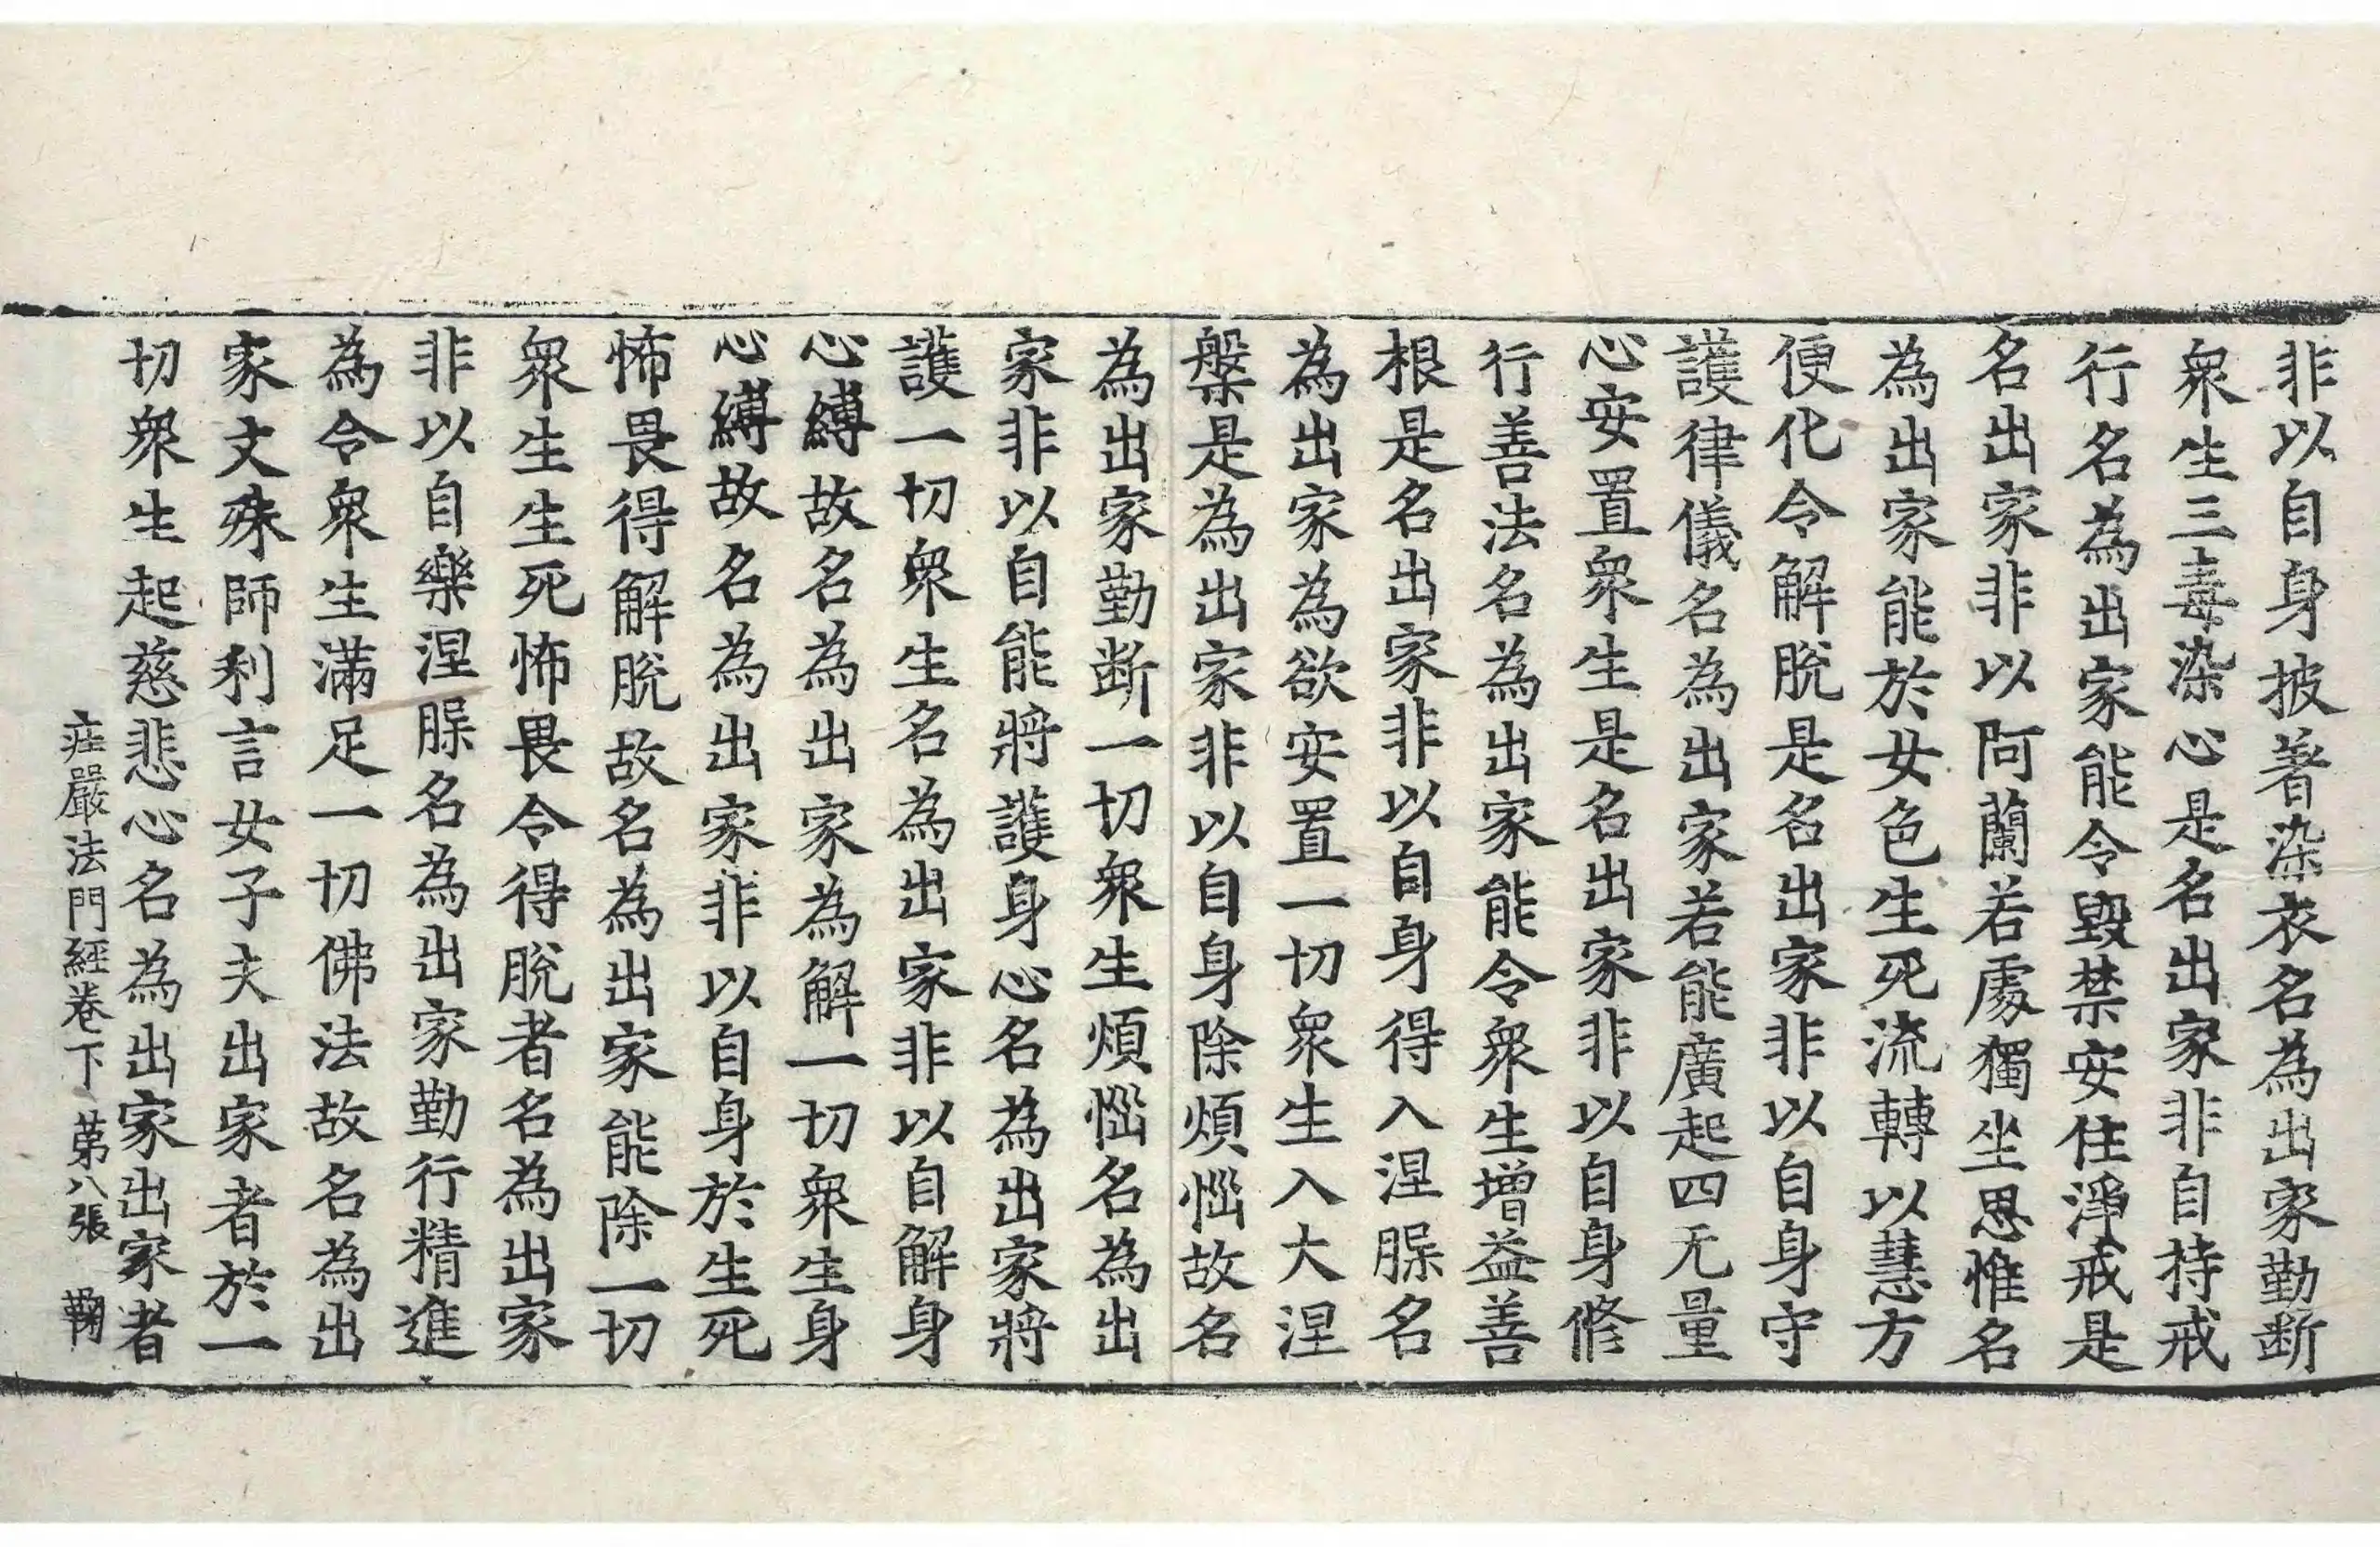 非以自身披著染衣名為出家勤断
衆生三毒染心是名出家非自持戒
行名為出家能令毀禁安住淨戒是
名出家非以阿蘭若處獨坐思惟名
為出家能於女色生死流轉以慧方
便化令解脫是名出家非以自身守
護律儀名為出家若能廣起四无量
心安置衆生是名出家非以自身修
行善法名為出家能令衆生增益善
根是名出家非以自身得入涅槃名
為出家為欲安置一切衆生入大涅
槃是為出家非以自身除煩惱故名
為出家勤断一切衆生煩惱名為出
家非以自能將護身心名為出家將
護一切衆生名為出家非以自解身
心縛故名為出家為解一切衆生身
心縛故名為出家非以自身於生死
怖畏得解脫故名為出家能除一切
衆生生死怖畏令得脫者名為出家
非以自樂涅槃名為出家勤行精進
為令衆生滿足一切佛法故名為出
家文殊師利言女子夫出家者於一
切衆生起慈悲心名為出家出家者
庄嚴法門經卷下 苐八張 鞠